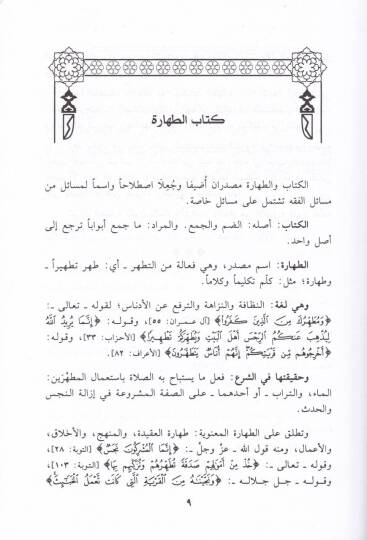 كتاب الطهارة
الكتاب والطهارة مصدران أُضيفا وجُعِلَا اصطلاحاً واسماً لمسائل من
مسائل الفقه تشتمل على مسائل خاصة.
الكتاب: أصله: الضم والجمع. والمراد: ما جمع أبواباً ترجع إلى
أصل واحد.
الطهارة: اسم مصدر، وهي فعالة من التطهر ـ أي: طهر تطهيراً ـ
وطهارة؛ مثل: كلّم تكليماً وكلاماً.
وهي لغة: النظافة والنزاهة والترفع عن الأدناس؛ لقوله ـ تعالى ـ:
﴿وَمُطَهِّرُكَ مِنَ الَّذِينَ كَفَرُوا﴾ [آل عمران: ٥٥]، وقوله: ﴿إِنَّمَا يُرِيدُ اللَّهُ
لِيُذْهِبَ عَنكُمُ الرِّجْسَ أَهْلَ الْبَيْتِ وَيُطَهِّرَكُمْ تَطْهِيرًا﴾ [الأحزاب: ٣٣]، وقوله:
﴿أَخْرِجُوهُم مِّن قَرْيَتِكُمْ إِنَّهُمْ أُنَاسٌ يَتَطَهَّرُونَ﴾ [الأعراف: ٨٢].
وحقيقتها في الشرع: فعل ما يستباح به الصلاة باستعمال المطهّرَين:
الماء، والتراب ـ أو أحدهما ـ على الصفة المشروعة في إزالة النجس
والحدث.
وتطلق على الطهارة المعنوية: طهارة العقيدة، والمنهج، والأخلاق،
والأعمال، ومنه قول الله ـ عزّ وجلّ ـ: ﴿إِنَّمَا الْمُشْرِكُونَ نَجَسٌ﴾ [التوبة: ٢٨]،
وقوله ـ تعالى ـ: ﴿خُذْ مِنْ أَمْوَالِهِمْ صَدَقَةً تُطَهِّرُهُمْ وَتُزَكِّيهِم بِهَا﴾ [التوبة: ١٠٣]،
وقوله ـ جل جلاله ـ: ﴿وَنَجَّيْنَاهُ مِنَ الْقَرْيَةِ الَّتِي كَانَت تَّعْمَلُ الْخَبَائِثَ﴾
٩